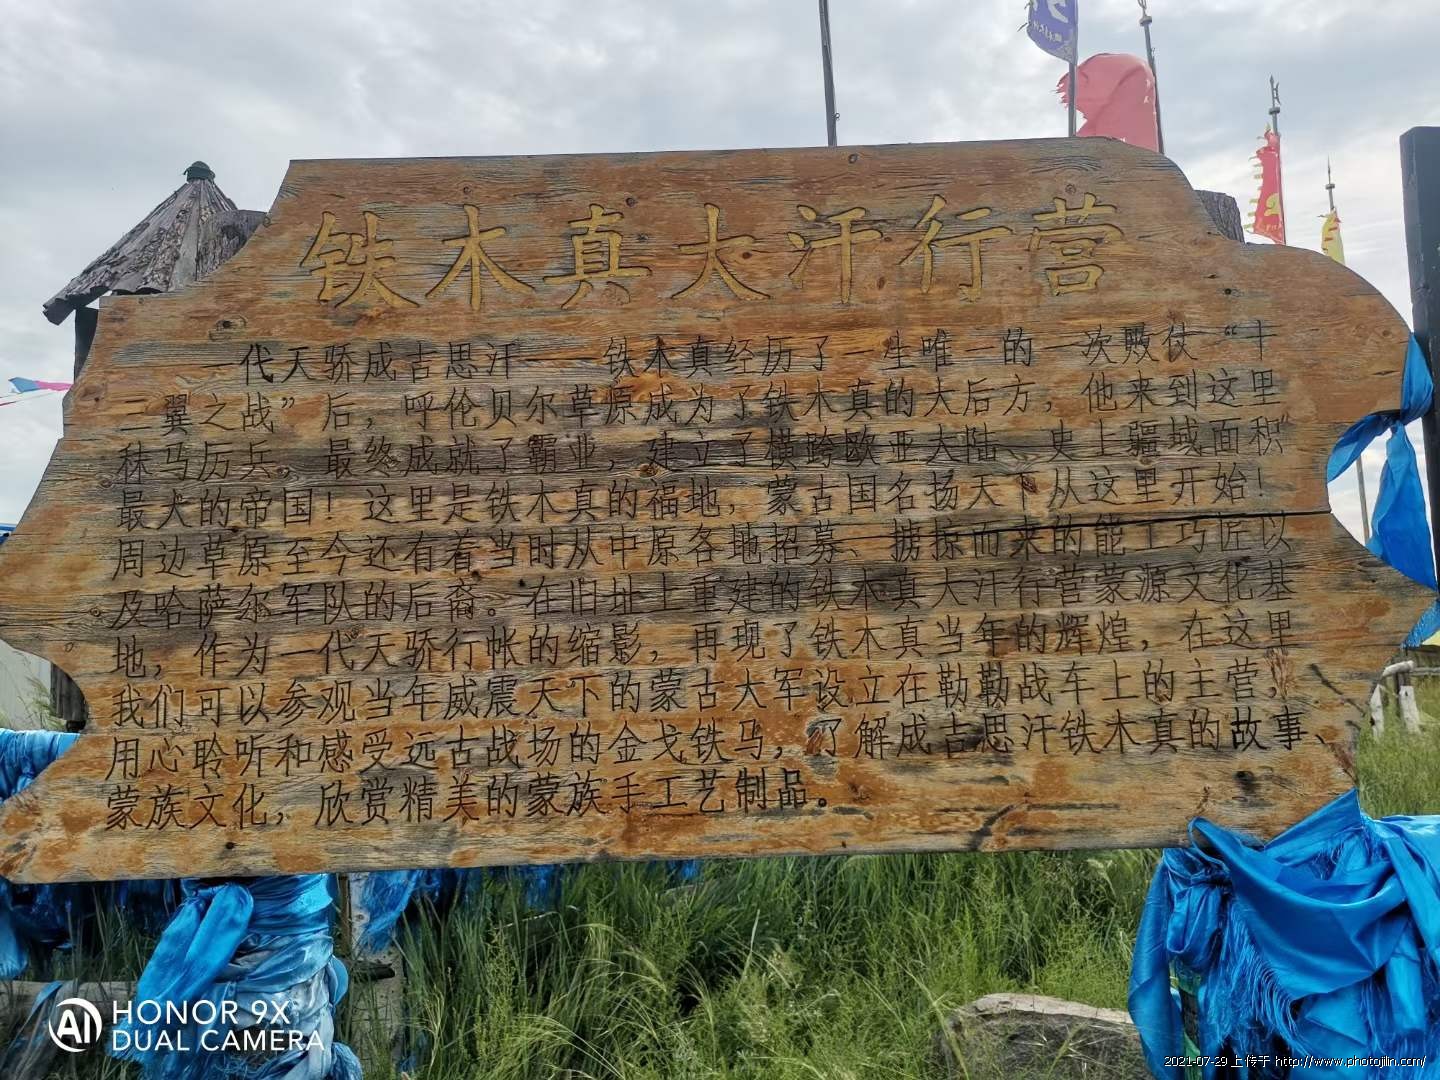 铁木真大汗行营
一代天骄成吉思汗——铁木真经历了一生唯一的一次败仗“十
三翼之战”后，呼伦贝尔草原成为了铁木真的大后方，他来到这里
秣马厉兵，最终成就了霸业，建立了横跨欧亚大陆、史上疆域面积
最大的帝国！这里是铁木真的福地，蒙古国名扬天下从这里开始！
周边草原至今还有着当时从中原各地招募、掳掠而来的能工巧匠以
及哈萨尔军队的后裔。在旧址上重建的铁木真大汗行营蒙源文化基
地，作为一代天骄行帐的缩影，再现了铁木真当年的辉煌，在这里
我们可以参观当年威震天下的蒙古大军设立在勒勒战车上的主营，
用心聆听和感受远古战场的金戈铁马，了解成吉思汗铁木真的故事、
蒙族文化，欣赏精美的蒙族手工艺制品。
AI HONOR 9X
DUAL CAMERA
2021-07-29 上传于 http://www.photojilin.com/